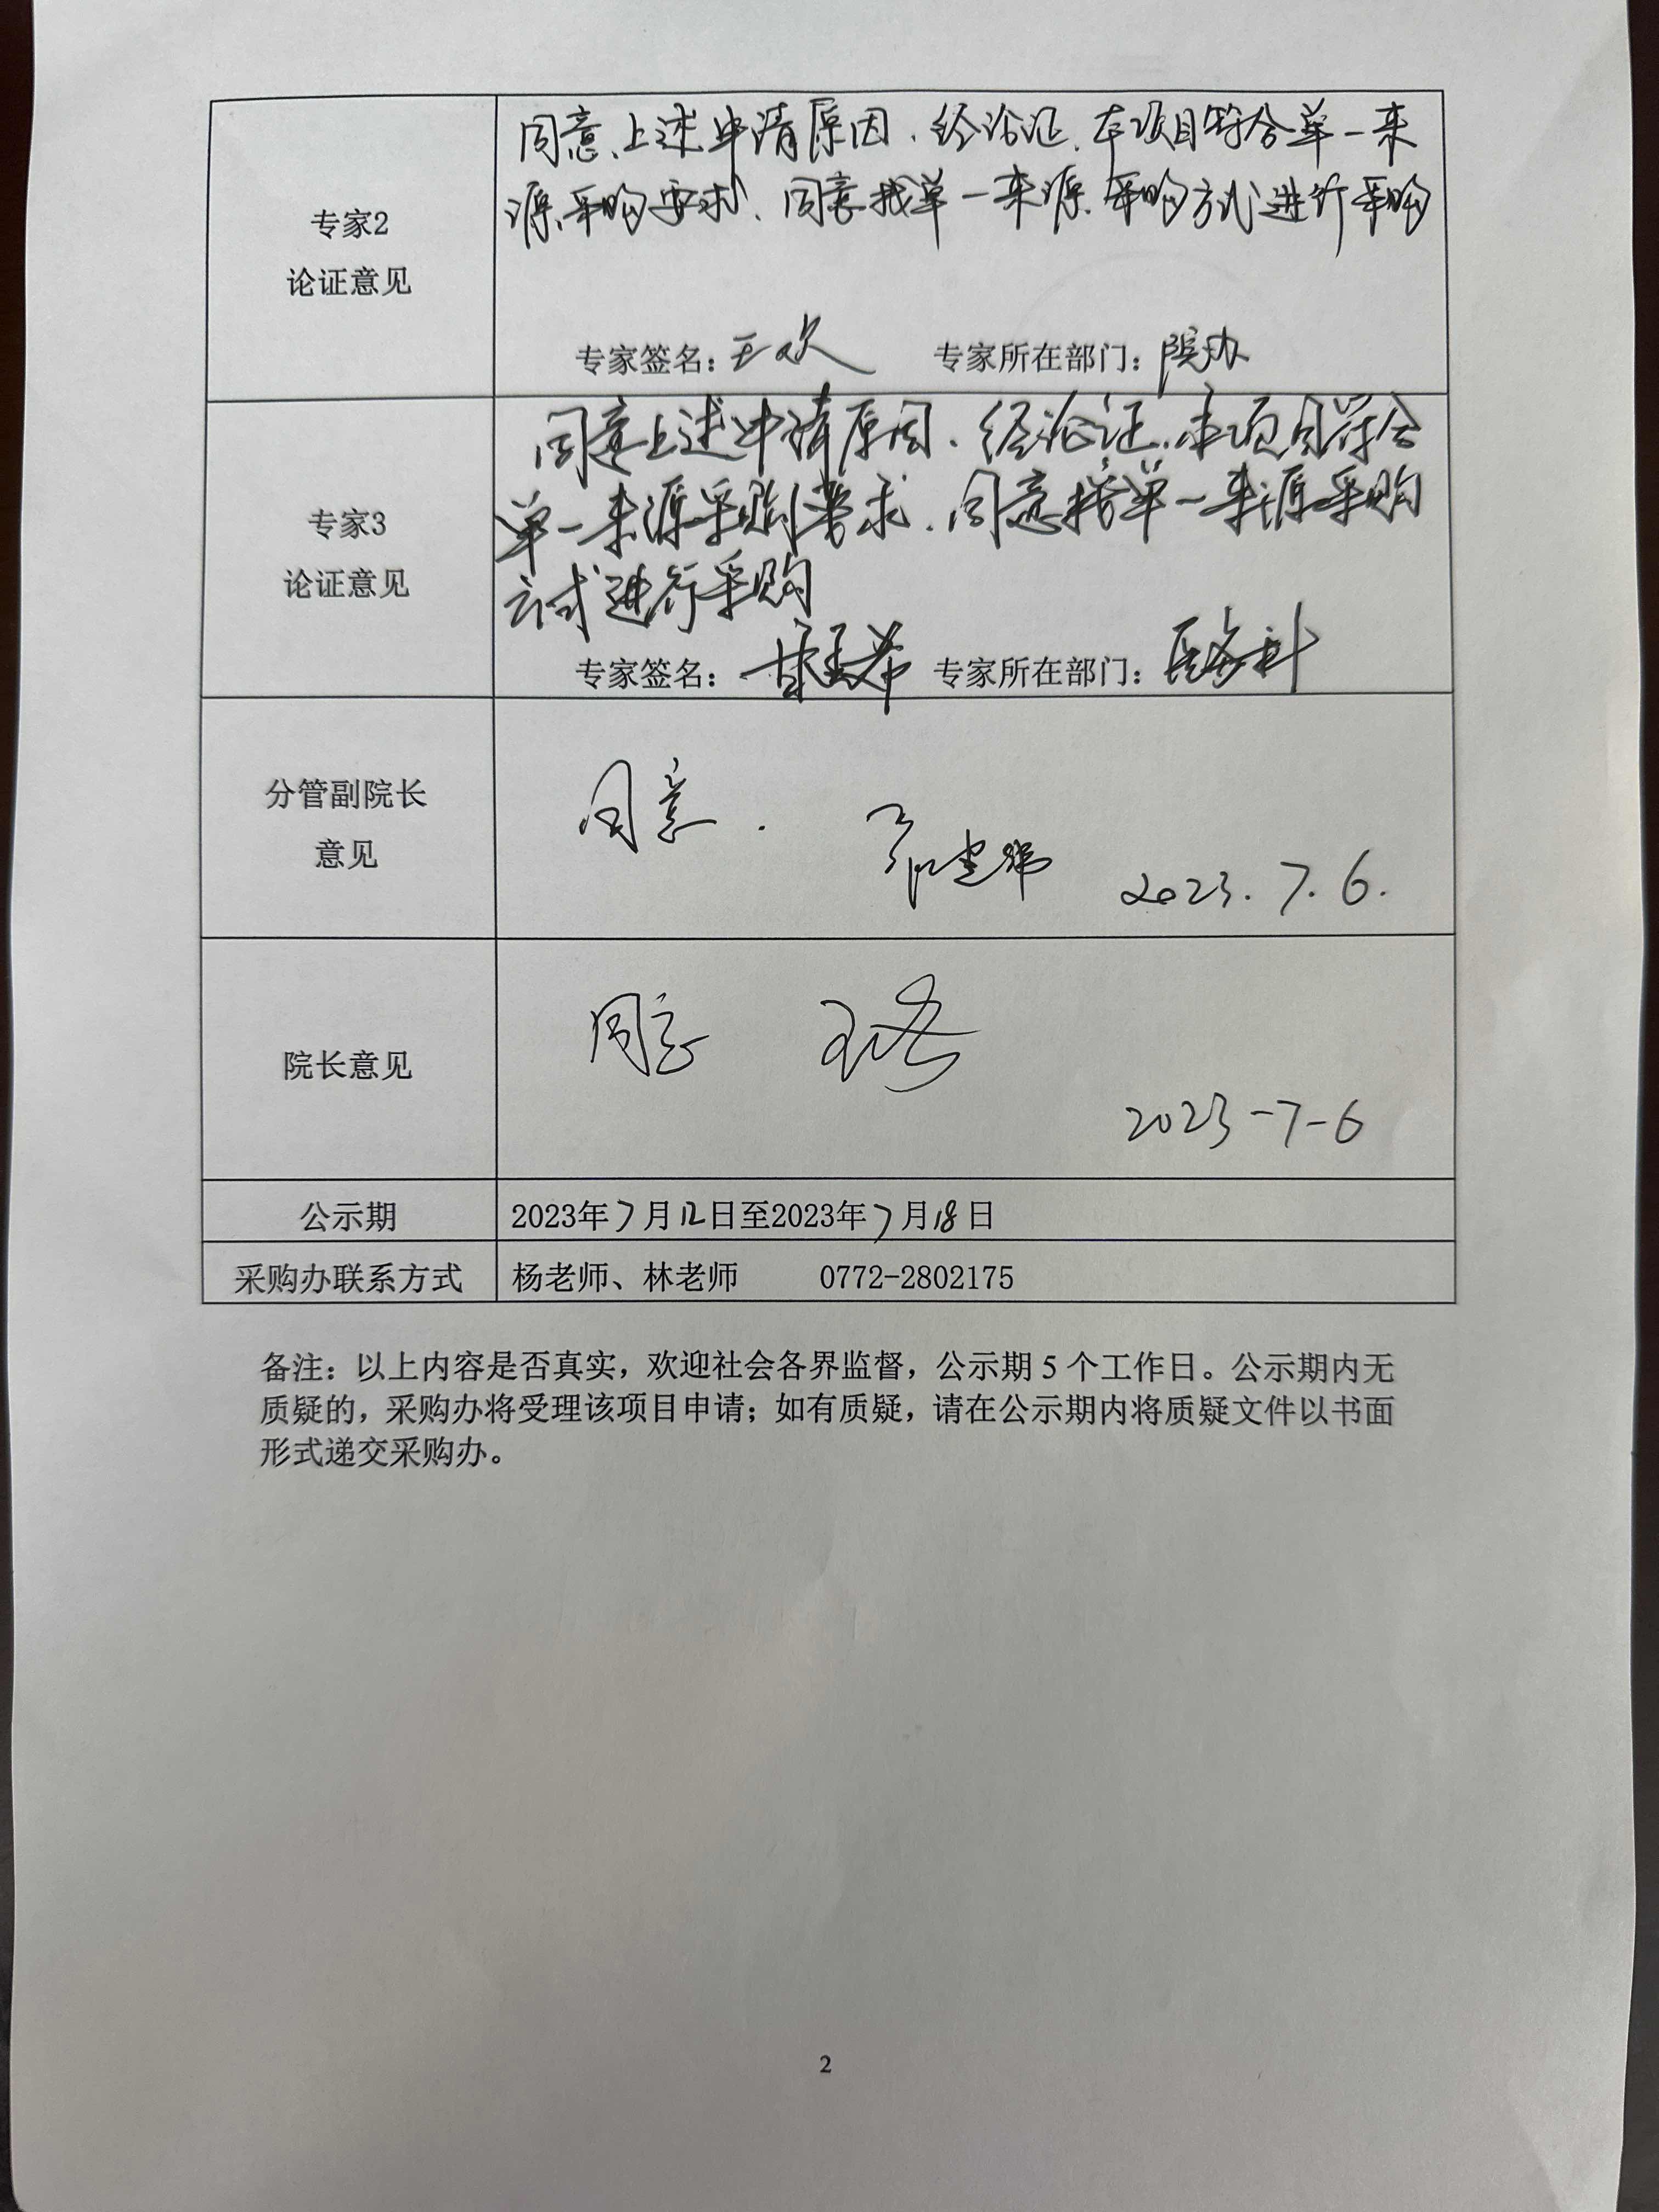 同意上述申请原因，经论证，本项目符合单一来
源采购要求，同意按单一来源采购方式进行采购
专家2
论证意见
专家签名：王欢 专家所在部门：院办
同意上述申请原因，经论证，本项目符合
单一来源采购需求，同意按单一来源采购
方式进行采购
专家3
论证意见
专家签名： 专家所在部门：医务科
分管副院长
意见
同意. 2023.7.6.
院长意见
同意
2023-7-6
公示期 2023年7月12日至2023年7月18日
采购办联系方式 杨老师、林老师 0772-2802175
备注：以上内容是否真实，欢迎社会各界监督，公示期5个工作日。公示期内无
质疑的，采购办将受理该项目申请；如有质疑，请在公示期内将质疑文件以书面
形式递交采购办。
2